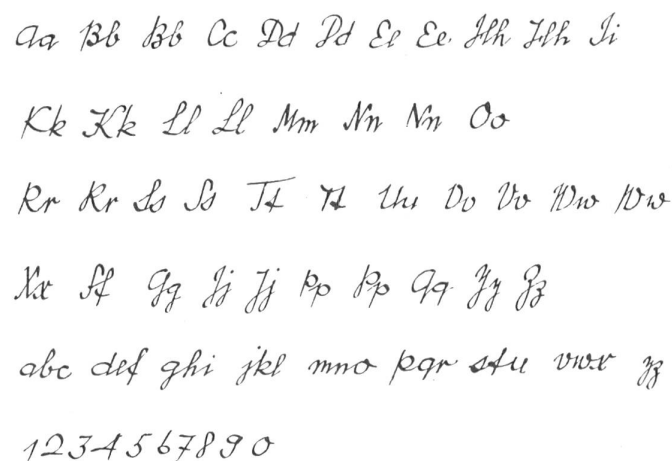 Aa Bb Bb Cc Dd Dd Ee Ee Hh Hh Ii
Kk Kk Ll Ll Mm Nn Nn Oo
Rr Rr Ss Ss Tt Tt Uu Vv Vv Ww Ww
Xx Ff Gg Jj Jj Pp Pp Qq Yy Zz
abc def ghi jkl mno pqr stu vwx yz
1 2 3 4 5 6 7 8 9 0